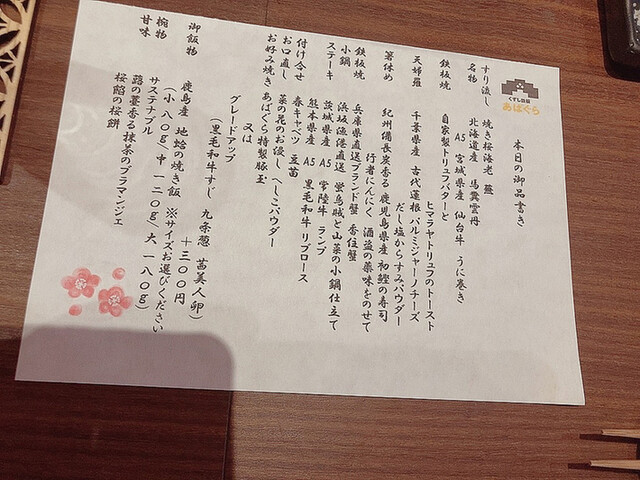 くずし鉄板
あばぐら
本日の御品書き
すり流し 焼き桜海老 蕪
名物 北海道産 馬糞雲丹
A5 宮城県産 仙台牛 うに巻き
鉄板焼 自家製トリュフバターと
ヒマラヤトリュフのトースト
天婦羅 千葉県産 古代蓮根パルミジャーノチーズ
だし塩からすみパウダー
箸休め 紀州備長炭香る 鹿児島県産 初鰹の寿司
行者にんにく 酒盗の薬味をのせて
鉄板焼 兵庫県直送ブランド蟹 香住蟹
小鍋 浜坂漁港直送 蛍烏賊と山菜の小鍋仕立て
ステーキ 茨城県産 A5 常陸牛 ランプ
熊本県産 A5 黒毛和牛リブロース
付け合せ 春キャベツ 豆苗
お口直し 菜の花のお浸し へしこパウダー
お好み焼き あばぐら特製豚玉
又は
グレードアップ
(黒毛和牛すじ 九条葱 茜美人卵)
+三〇〇円
御飯物 鹿島産 地蛤の焼き飯 ※サイズお選びください
(小 八〇g/中 一二〇g/大 一八〇g)
椀物 サステナブル
甘味 蕗の薹香る抹茶のブラマンジェ
桜餡の桜餅